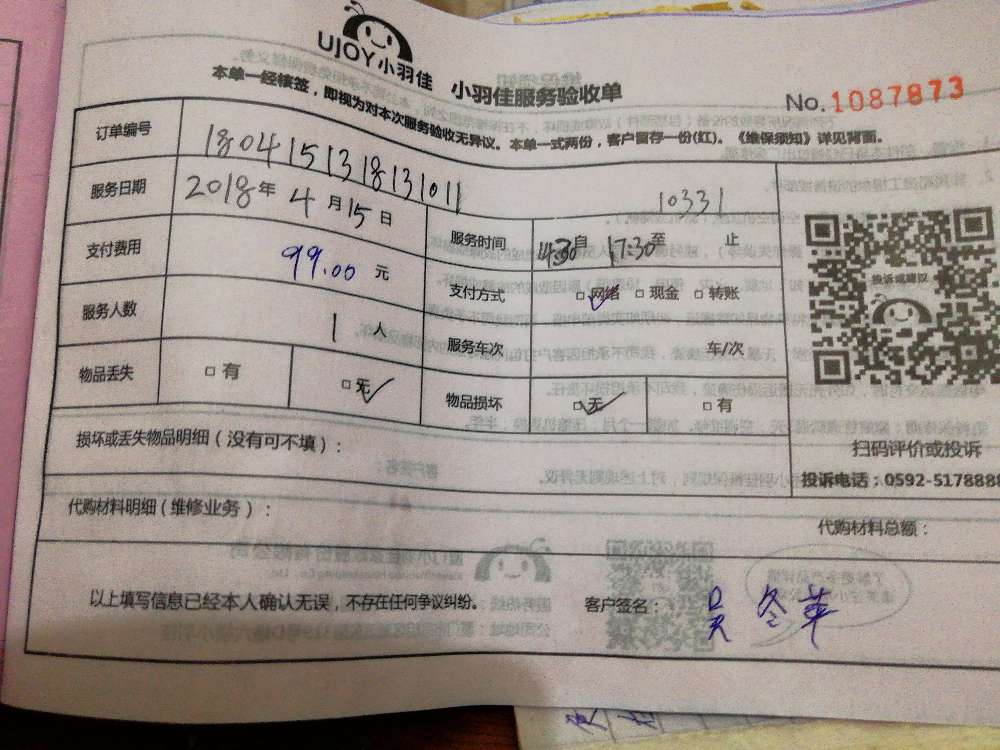 UJOY小羽佳 小羽佳服务验收单
No.1087873
本单一经核签，即视为对本次服务验收无异议。本单一式两份，客户留存一份(红)。《维保须知》详见背面。
订单编号 180415131813 1011
10331
服务日期 2018年4月15日 服务时间 14:30自 17:30至 止
支付费用 99.00元 支付方式 □网络 ✓ □现金 □转账
服务人数 1人 服务车次 车/次
物品丢失 □有 □无 ✓ 物品损坏 □无 ✓ □有
投诉或建议
扫码评价或投诉
投诉电话：0592-5178888
损坏或丢失物品明细（没有可不填）：
代购材料明细（维修业务）： 代购材料总额：
以上填写信息已经本人确认无误，不存在任何争议纠纷。 客户签名： 吴冬苹